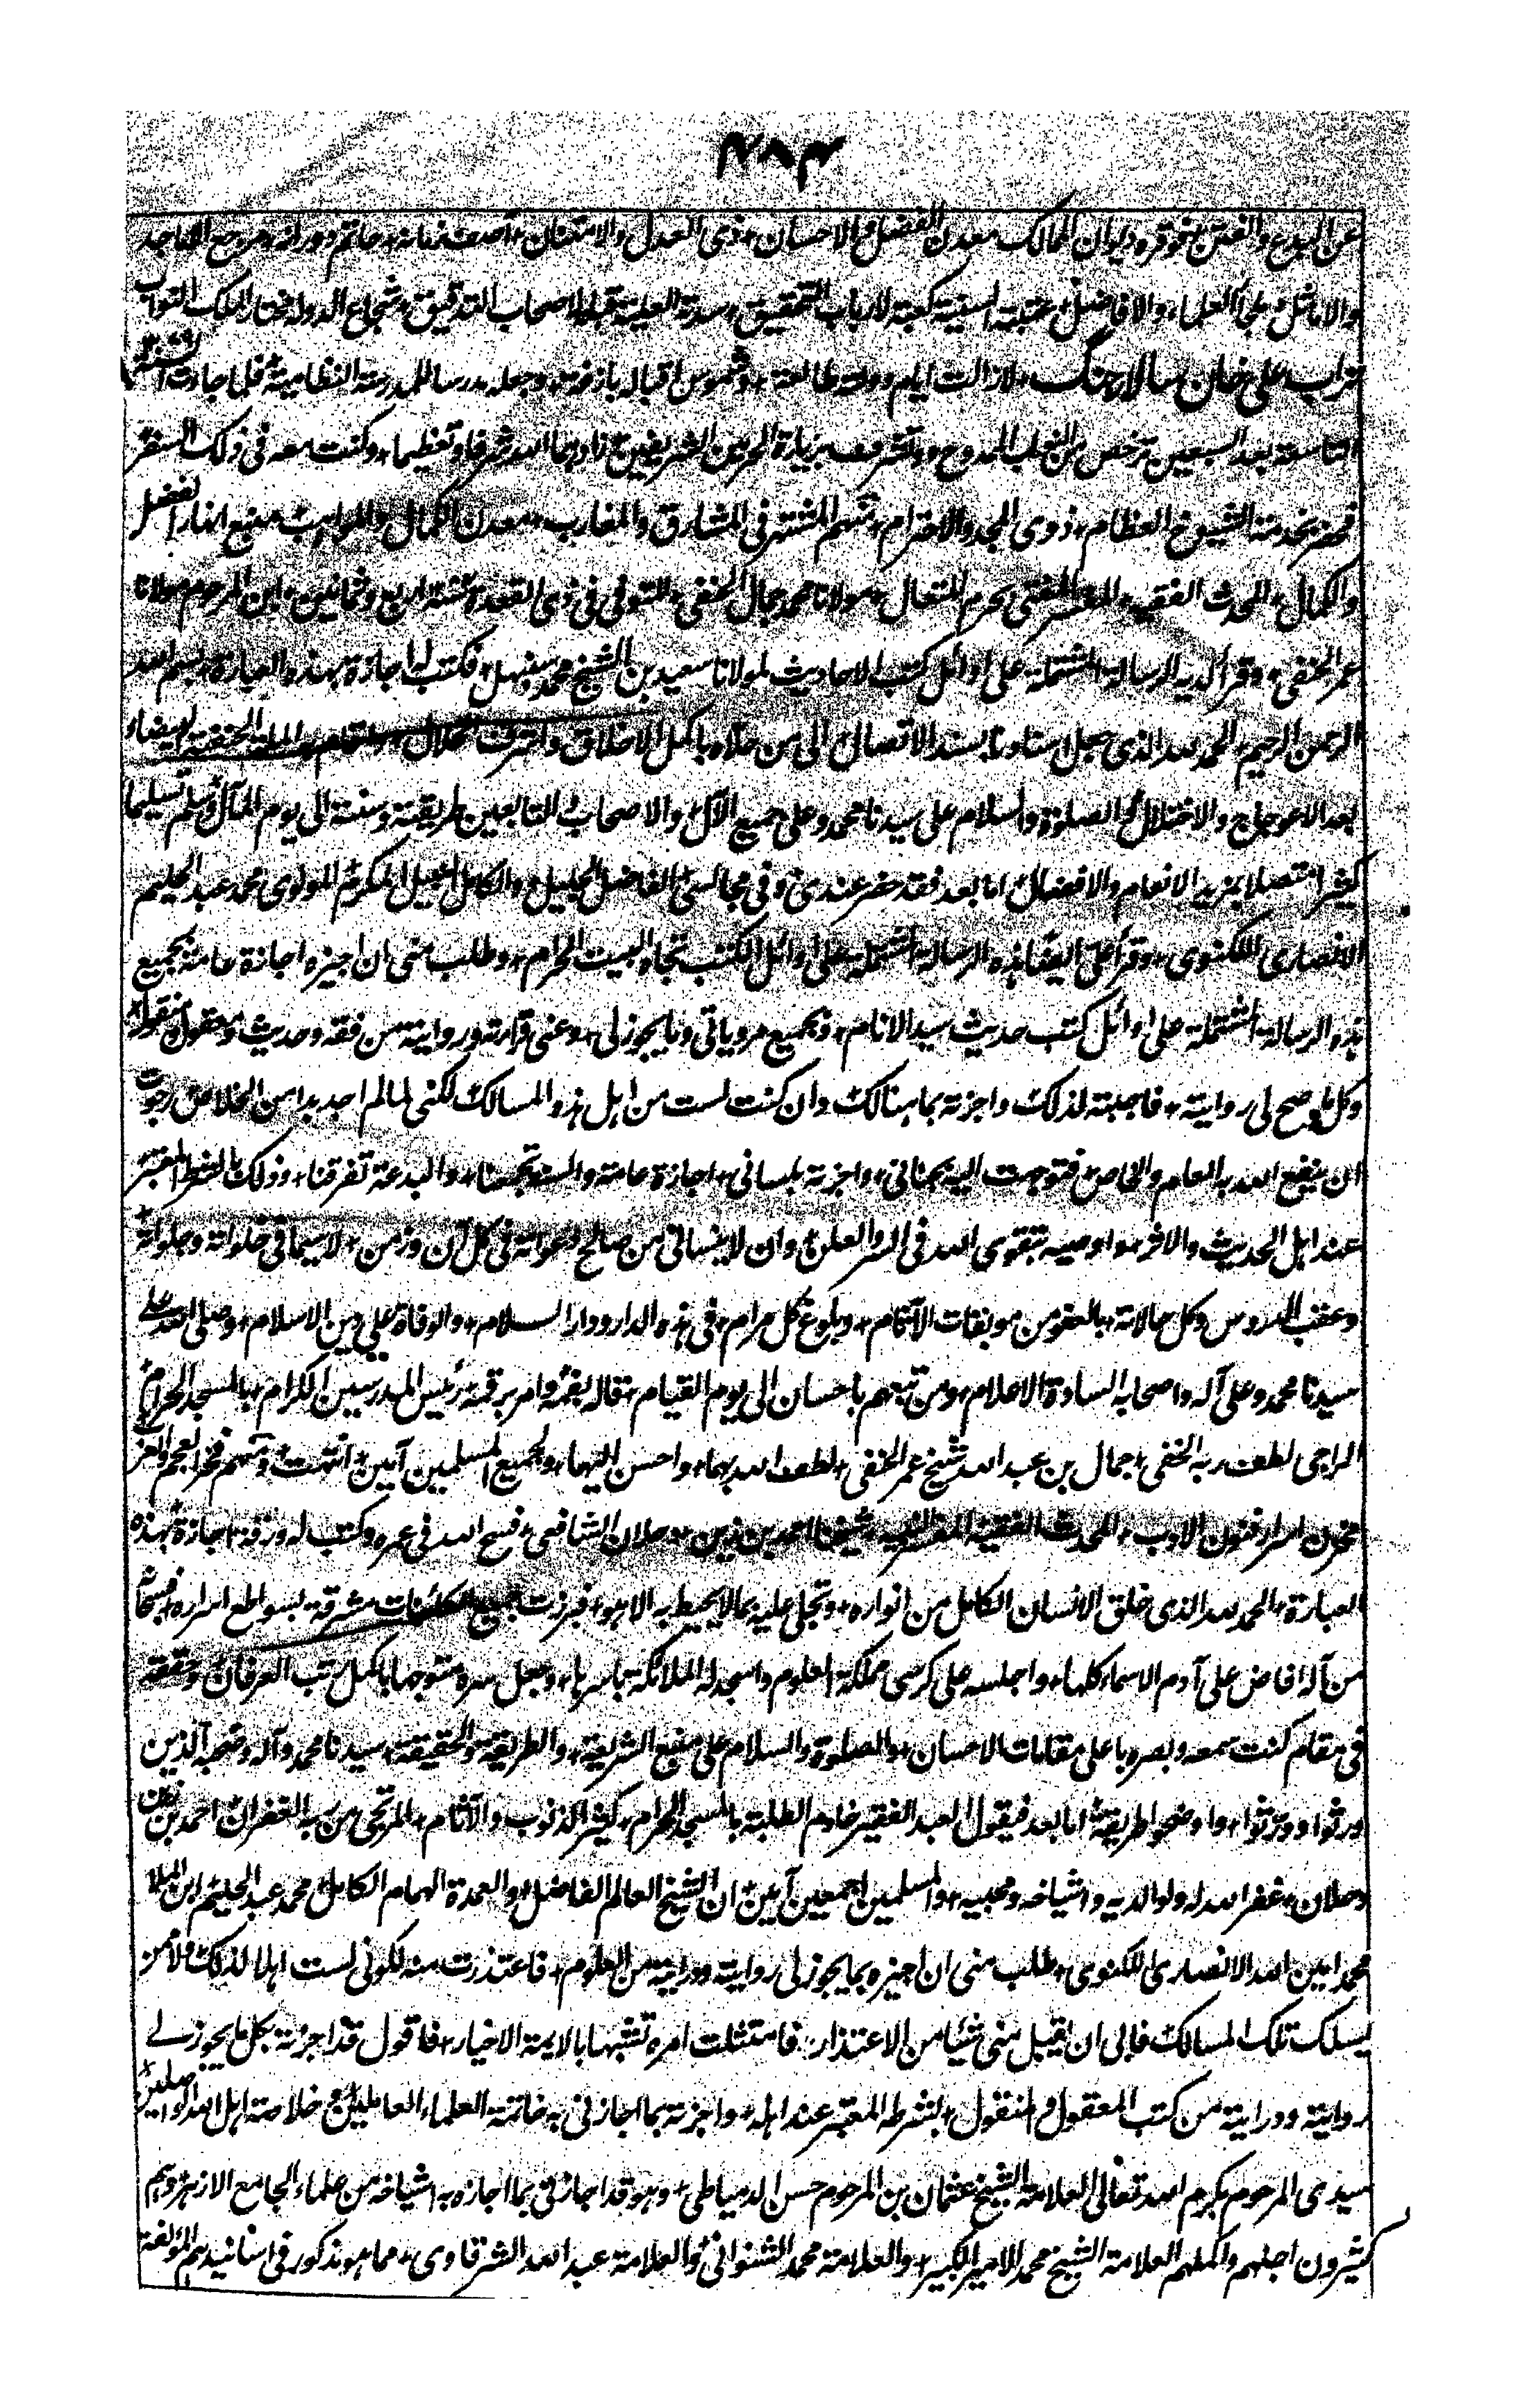 ٤٨٣
عن البدع والفتن نحو قره ديوان الممالك معدن الفضل والاحسان ذى العدل والامتنان آصف زمانه حاتم دورانه مرجع الاماجد
والاماثل ملجأ العلماء والافاضل عتبته السنية كعبة لارباب التحقيق وسدته العلية قبلة لاصحاب التدقيق شجاع الدولة مختار الملك النواب
تراب على خان سالار جنك لازالت ايام دولته طالعة وشموس اقباله بازغة وجعله مدرسا للمدرسة النظامية فلما جاءت السنة
التاسعة بعد السبعين ترخص من النواب الممدوح وتشرف بزيارة الحرمين الشريفين زادهما الله شرفا وتعظيما وكنت معه فى ذلك السفر
فحضر بخدمته الشيوخ العظام ذوى المجد والاحترام منهم المشتهر فى المشارق والمغارب معدن الكمال والمواهب منبع انهار الفضل
والكمال المحدث الفقيه المفسر المفتى بحرم المتعال مولانا محمد جمال الحنفى المتوفى فى ذى القعدة سنة اربع وثمانين ابن المرحوم مولانا
عمر الحنفى وقرأ لديه الرسالة المشتملة على اوائل كتب الاحاديث لمولانا سعيد بن الشيخ محمد سنبل فكتب له اجازة بهذه العبارة بسم الله
الرحمن الرحيم الحمد لله الذى جعل استاذنا بسند الاتصال الى من حلاه باكمل الاخلاق واشرف الخلال واقام الملة الحنيفية البيضاء
بعد الاعوجاج والاختلال والصلوة والسلام على سيدنا محمد وعلى جميع الآل والاصحاب التابعين طريقته وسنته الى يوم المآل وسلم تسليما
كثيرا متصلا بمزيد الانعام والافضال اما بعد فقد حضر عندى وفى مجالسى الفاضل الجليل والكامل النبيل المكرم المولوى محمد عبد الحليم
الانصارى اللكنوى وقرأ على ايضا هذه الرسالة المشتملة على اوائل الكتب تجاه البيت الحرام وطلب منى ان اجيزه اجازة عامة بجميع
هذه الرسالة المشتملة على اوائل كتب حديث سيد الانام وبجميع مروياتى وما يجوز لى وعنى قراءته وروايته من فقه وحديث ومعقول ومنقول
وكل ما صح لى روايته فاجبته لذلك واجزته بما هنالك وان كنت لست من اهل هذه المسالك لكنى لما لم اجد بدا من الخلاص رجوت
ان ينفع الله به العام والخاص فتوجهت اليه بجنانى واجزته بلسانى اجازة عامة والسنة تجمعنا والبدعة تفرقنا وذلك بالشرط المعتبر
عند اهل الحديث والاثر واوصيه بتقوى الله فى السر والعلن وان لا ينسانى من صالح دعواته فى كل آن وزمن لاسيما فى خلواته وجلواته
وعقب الدروس وكل حالاته بالعفو من موبقات الآثام وبلوغ كل مرام فى هذه الدار ودار السلام والوفاة على دين الاسلام وصلى الله على
سيدنا محمد وعلى آله واصحابه السادة الاعلام ومن تبعهم باحسان الى يوم القيام قاله بفمه وامر برقمه رئيس المدرسين الكرام بالمسجد الحرام
الراجى لطف ربه الخفى جمال بن عبد الله شيخ عمر الحنفى لطف الله بهما واحسن اليهما ولجميع المسلمين آمين انتهت ومنهم فخر العجم والعرب
مخزن اسرار فنون الادب المحدث الفقيه المفسر النبيه شيخنا احمد بن زين دحلان الشافعى فسح الله فى عمره وكتب له ورقة اجازة بهذه
العبارة الحمد لله الذى خلق الانسان الكامل من انواره وتجلى عليه بما لا يحيط به الا هو فبرزت جميع الكائنات مشرقة بسواطع اسراره فسبحان
من آله افاض على آدم الاسماء كلها واجلسه على كرسى مملكة العلوم واسجد له الملائكة باسرها وجعل سره متوجها باكمل رتب العرفان وحققه
فى مقام كنت سمعه وبصره باعلى مقامات الاحسان والصلوة والسلام على منبع الشريعة والطريقة والحقيقة سيدنا محمد وآله وصحبه الذين
ورثوا وورّثوا واوضحوا طريقه اما بعد فيقول العبد الفقير خادم الطلبة بالمسجد الحرام كثير الذنوب والآثام المرتجى من ربه الغفران احمد بن زين
دحلان غفر الله له ولوالديه واشياخه ومحبيه والمسلمين اجمعين آمين ان الشيخ العالم الفاضل والعمدة الهمام الكامل محمد عبد الحليم ابن الملا
محمد امين الله الانصارى اللكنوى طلب منى ان اجيزه بما يجوز لى روايته ودرايته من العلوم فاعتذرت منه لكونى لست اهلا لذلك ولا ممن
يسلك تلك المسالك فابى ان يقبل منى شيئا من الاعتذار فامتثلت امره تشبها بالايمة الاخيار فاقول قد اجزته بكل ما يجوز لى
روايته ودرايته من كتب المعقول والمنقول بشرطه المعتبر عند اهله واجزته بما اجازنى به خاتمة العلماء العاملين خلاصة اهل الله الواصلين
سيدى المرحوم بكرم الله تعالى العلامة الشيخ عثمان بن المرحوم حسن الدمياطى وهو قد اجازنى بما اجازه به اشياخه من علماء الجامع الازهر وهم
كثيرون اجلهم واكملهم العلامة الشيخ محمد الامير الكبير والعلامة محمد الشنوانى والعلامة عبد الله الشرقاوى مما هو مذكور فى اسانيدهم المؤلفة